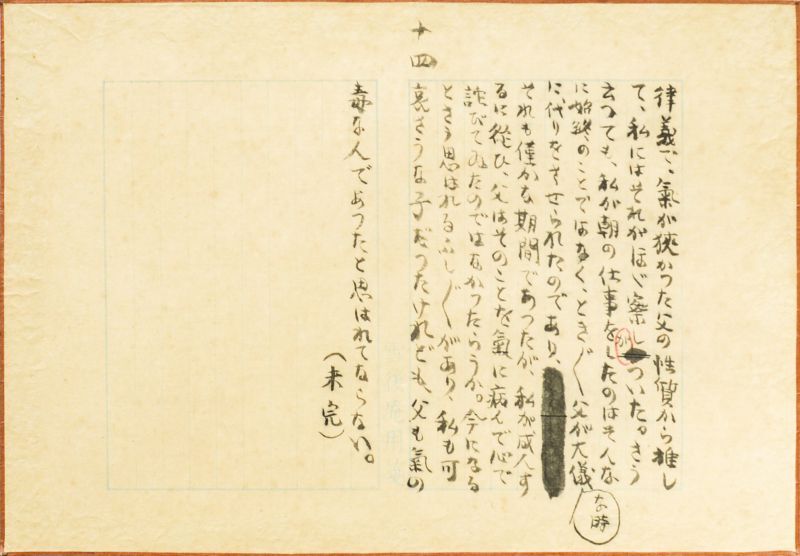 十四
律義で、氣が狹かつた父の性質から推し
て、私にはそれがほゞ察しがついた。さう
云つても、私が朝の仕事をしたのはそんな
に始終のことではなく、とき〴〵父が大儀な時
に、代りをさせられたのであり、
それも僅かな期間であつたが、私が成人す
るに從ひ、父はそのことを氣に病んで心で
詫びてゐたのではなかつたらうか。今になる
とさう思はれるふし〴〵があり、私も可
哀さうな子だつたけれども、父も氣の
毒なんであつたと思はれてならない。
（未完）